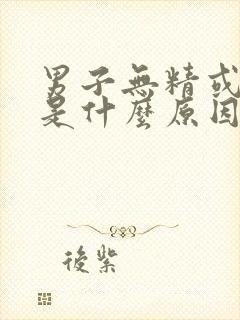 男子無精或
是什麼原因
後紫